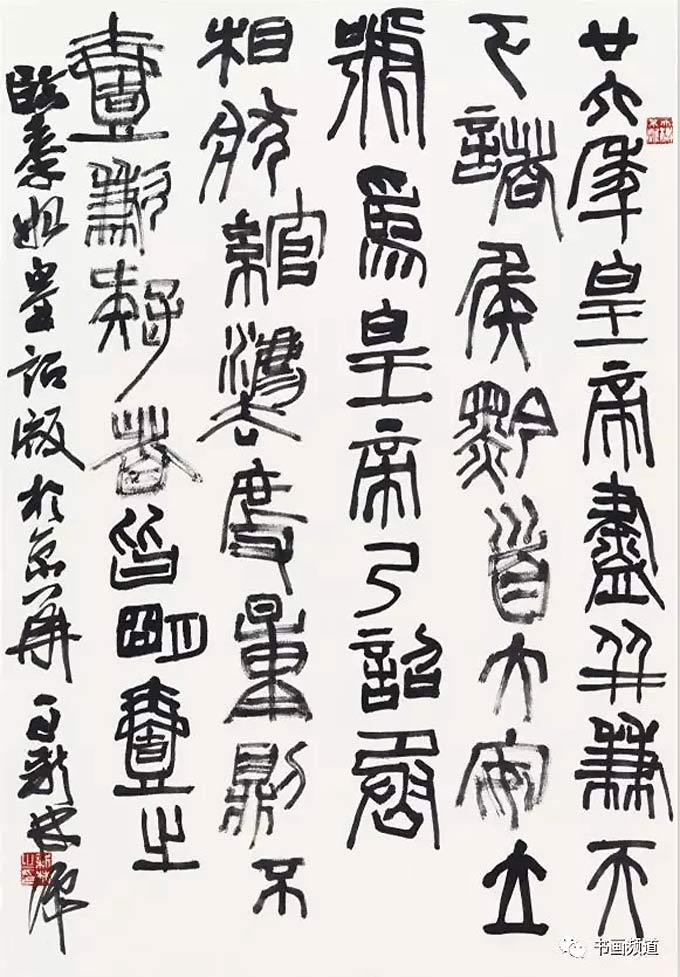 廿六年皇帝盡并兼天
下諸侯黔首大安立
號為皇帝乃詔丞
相狀綰灋度量則不
壹歉疑者皆明壹之
臨秦始皇詔版於京華
书画频道